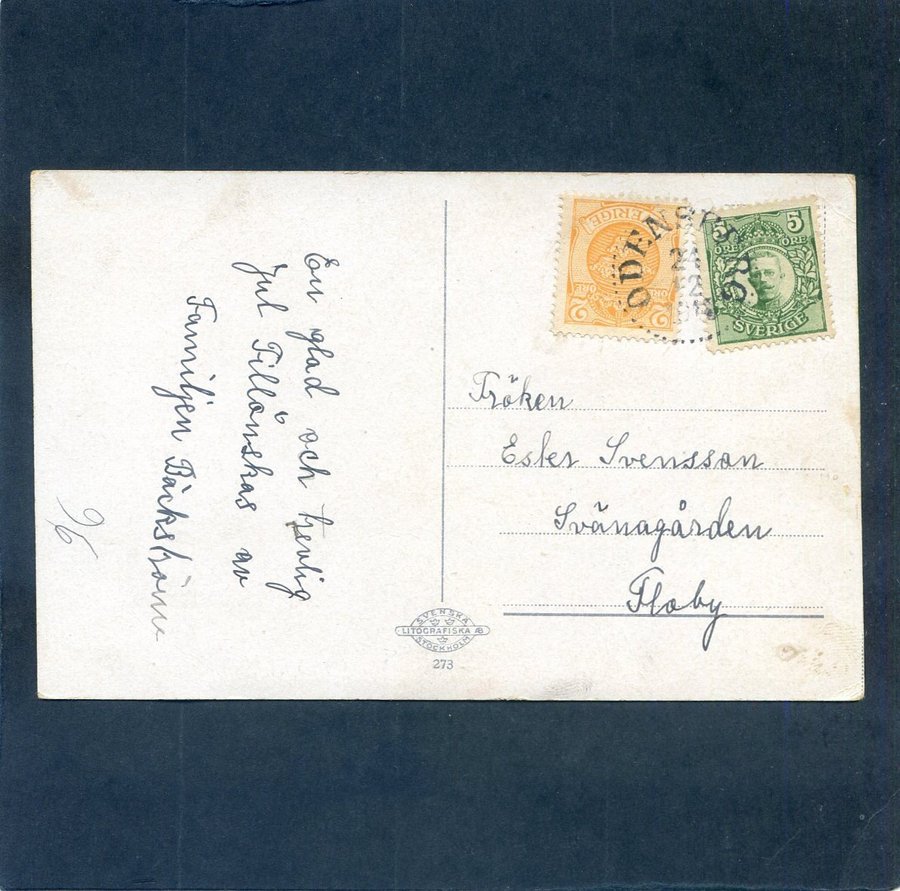 En glad och trevlig
Jul Tillönskas av
Familjen Bäckström
96
2 ÖRE SVERIGE ÖRE 2
ODENSVI
24
12
5 ÖRE 5 ÖRE
SVERIGE
Fröken
Ester Svensson
Svänagården
Floby
SVENSKA
LITOGRAFISKA AB
STOCKHOLM
273